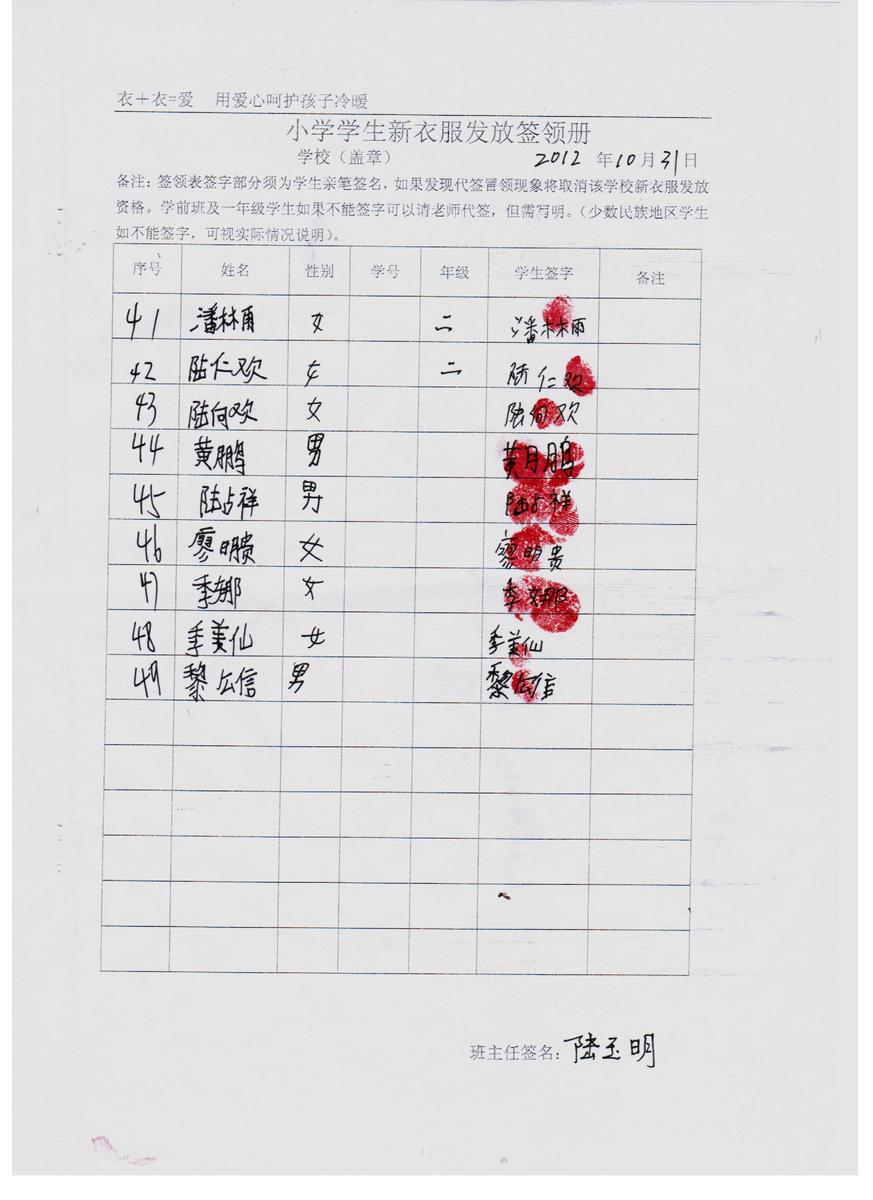 衣+衣=爱 用爱心呵护孩子冷暖
小学学生新衣服发放签领册
学校（盖章） 2012 年10月31日
备注：签领表签字部分须为学生亲笔签名，如果发现代签冒领现象将取消该学校新衣服发放
资格。学前班及一年级学生如果不能签字可以请老师代签，但需写明。（少数民族地区学生
如不能签字，可视实际情况说明）。
序号 姓名 性别 学号 年级 学生签字 备注
41 潘林雨 女 二 潘林雨
42 陆仁欢 女 二 陆仁欢
43 陆向欢 女 陆向欢
44 黄鹏 男 黄月鹏
45 陆占祥 男 陆占祥
46 廖明贵 女 廖明贵
47 季娜 女 季娜
48 季美仙 女 季美仙
49 黎公信 男 黎公信
班主任签名：陆玉明